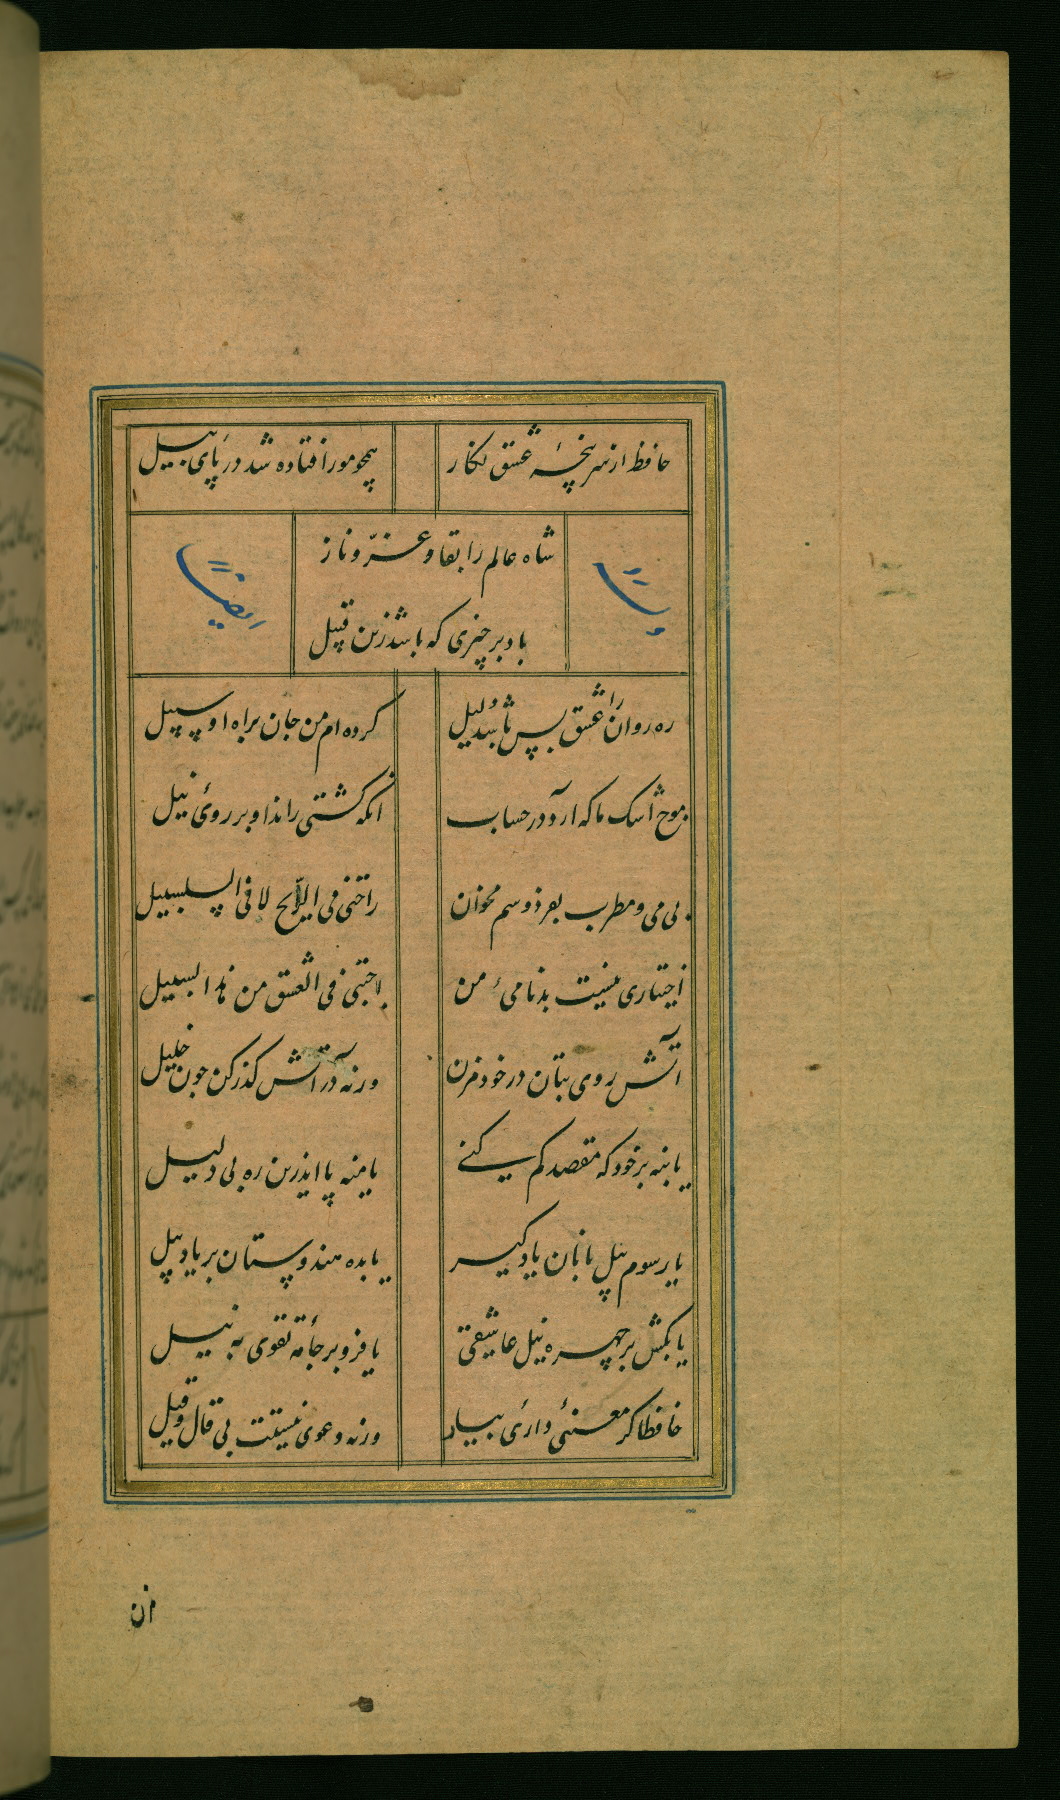 حافظ از سر پنجهٔ عشق نکار
همچو مور افتاده شد در پای پیل
شاه عالم را بقا و عزّ و ناز
باد بر چیزی که باشد زین قبیل
وله
ایضاً
ره روان را عشق بس باشد دلیل
کرده ام من جان براه او سبیل
موج اشک ما کی ارد در حساب
انکه کشتی راند او بر روی نیل
بی می و مطرب بفردوسم مخوان
راحتی فی الراح لا فی السلسبیل
اختیاری نیست بدنامیٔ من
احبتی فی العشق من هذا السبیل
آتش روی بتان در خود مزن
ورنه در آتش گذر کن چون خلیل
یا بنه بر خود که مقصد کم کنی
یا منه پا اندرین ره بی دلیل
یا رسوم پیل بانان یاد کیر
یا بده هندوستان بر یاد پیل
یا بکش بر چهره نیل عاشقی
یا فرو بر جامهٔ تقوی به نیل
حافظا کر معنیٔ داری بیار
ورنه دعوی نیست بی قال و قیل
ان